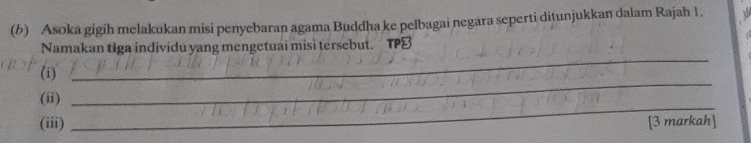 (b) Asoka gigih melakukan misi penyebaran agama Buddha ke pelbagai negara seperti ditunjukkan dalam Rajah 1.
Namakan tiga individu yang mengetuai misi tersebut. TP3
(i)
(ii)
(iii)
[3 markah]